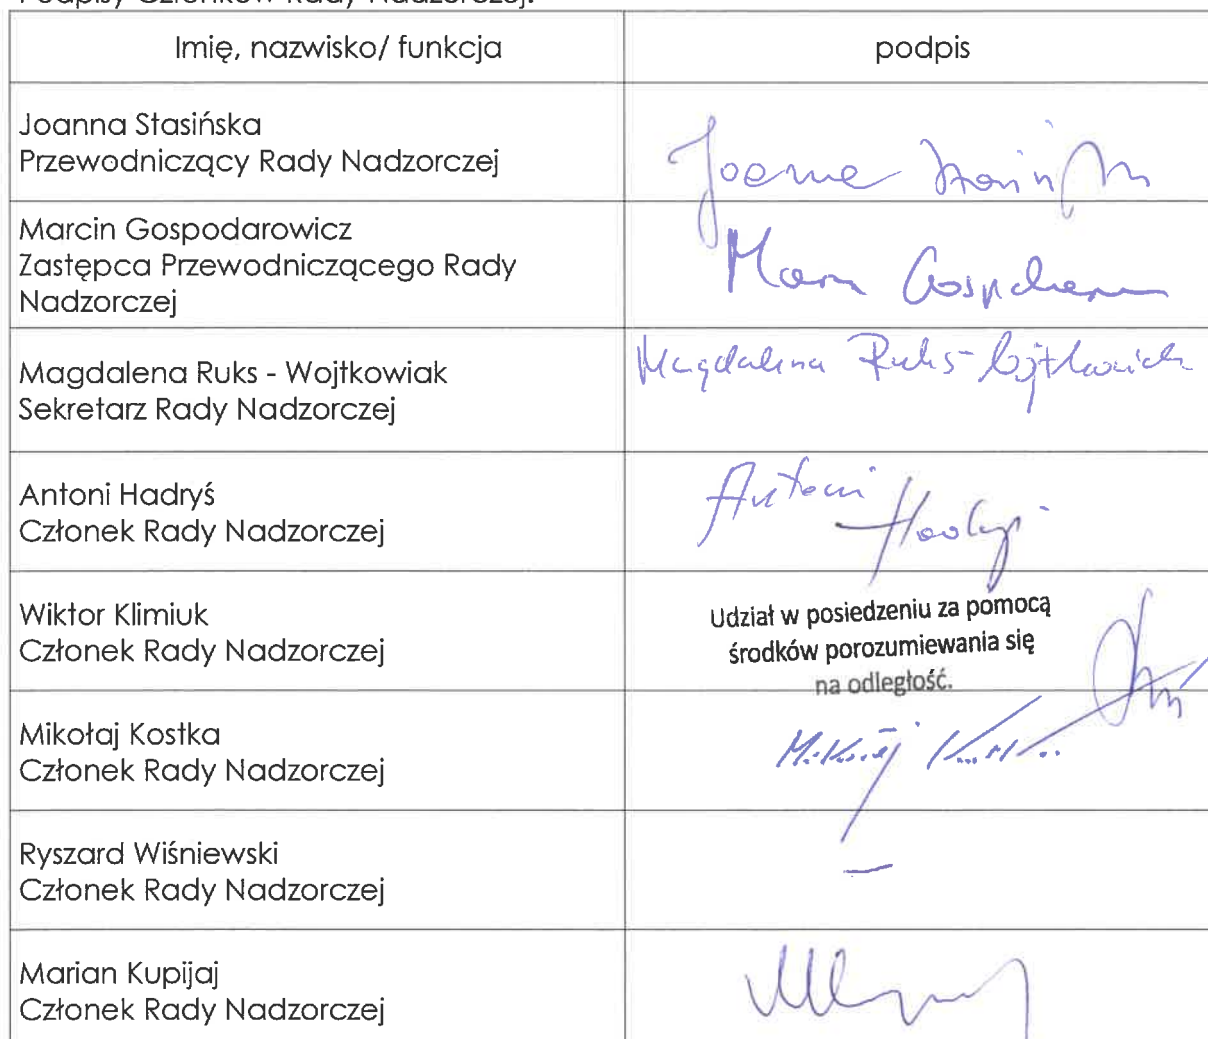 Podpisy Członków Rady Nadzorczej:
Imię, nazwisko/ funkcja
podpis
Joanna Stasińska
Przewodniczący Rady Nadzorczej
Marcin Gospodarowicz
Zastępca Przewodniczącego Rady
Nadzorczej
Magdalena Ruks - Wojtkowiak
Sekretarz Rady Nadzorczej
Magdalena Ruks-Wojtkowiak
Antoni Hadryś
Członek Rady Nadzorczej
Antoni
Wiktor Klimiuk
Członek Rady Nadzorczej
Udział w posiedzeniu za pomocą
środków porozumiewania się
na odległość.
Mikołaj Kostka
Członek Rady Nadzorczej
Mikołaj
Ryszard Wiśniewski
Członek Rady Nadzorczej
–
Marian Kupijaj
Członek Rady Nadzorczej